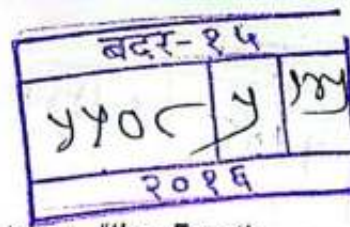 बदर-१५
५५०८ ५
२०१६